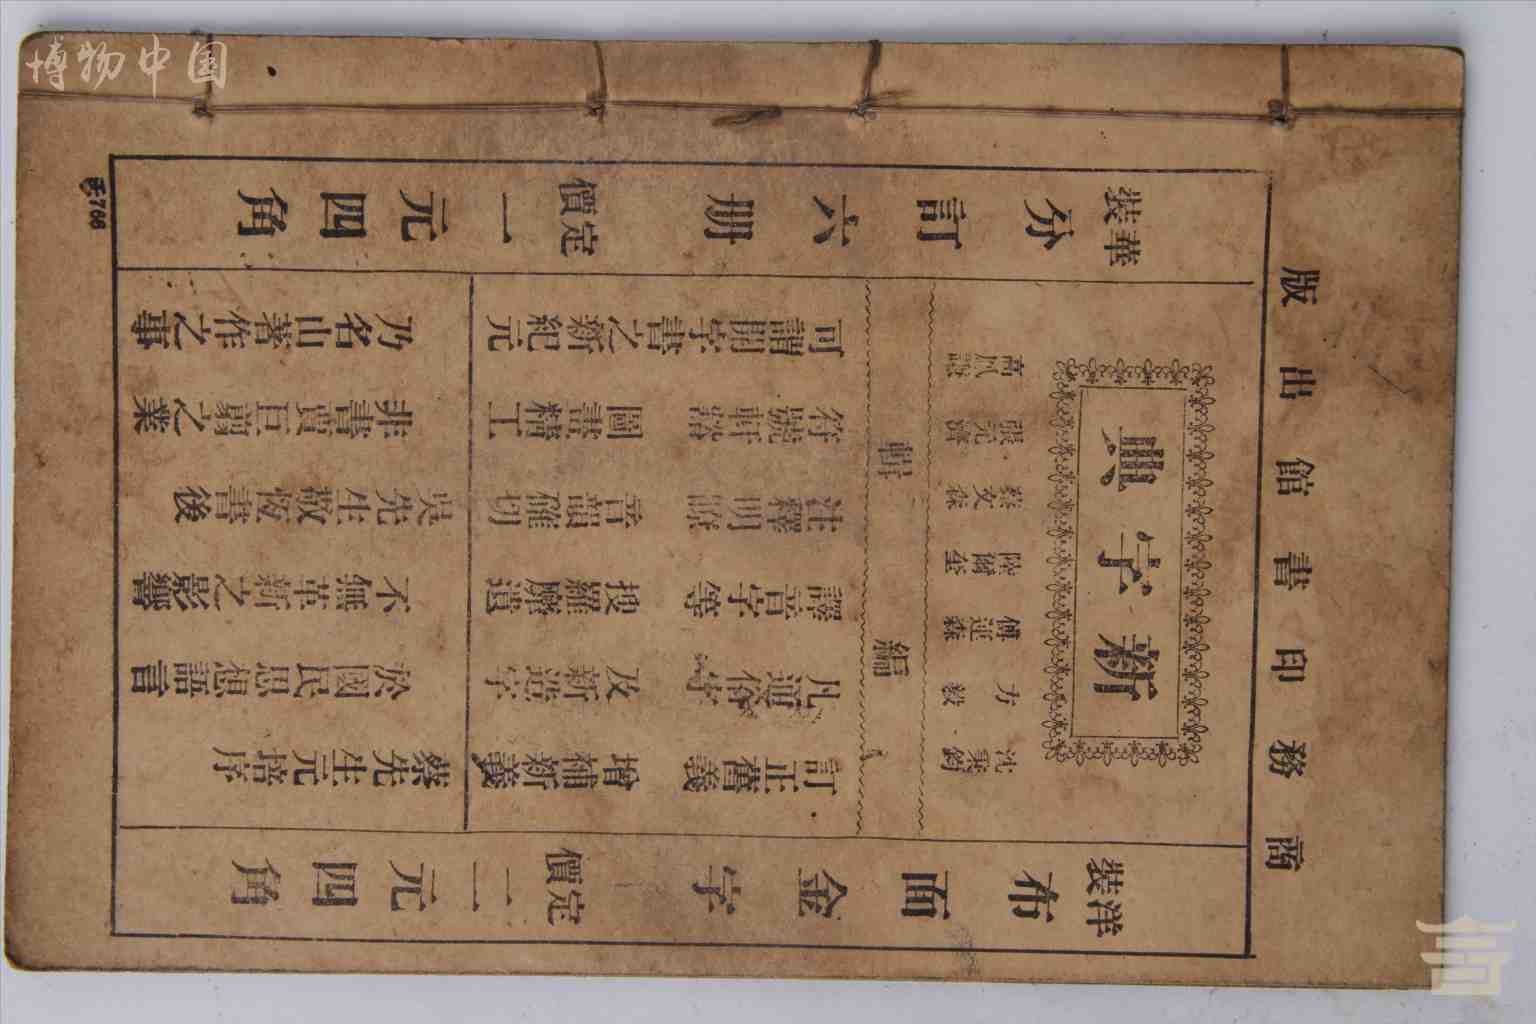 商務印書館出版
洋裝 布面金字 定價二元四角
新字典
沈秉鈞 方毅 傅運森 陸爾奎 蔡文森 張元濟 高鳳謙
編輯
訂正舊義 增補新義
凡通俗字 及新造字
譯音字等 搜羅靡遺
註釋明 音韻確切
符號軒豁 圖畫精工
可謂開字書之新紀元
蔡先生元培序
於國民思想語言
不無革新之影響
吳先生敬恆書後
非書賈巨翦之業
乃名山著作之事
華裝 分訂六册 定價一元四角
博物中国